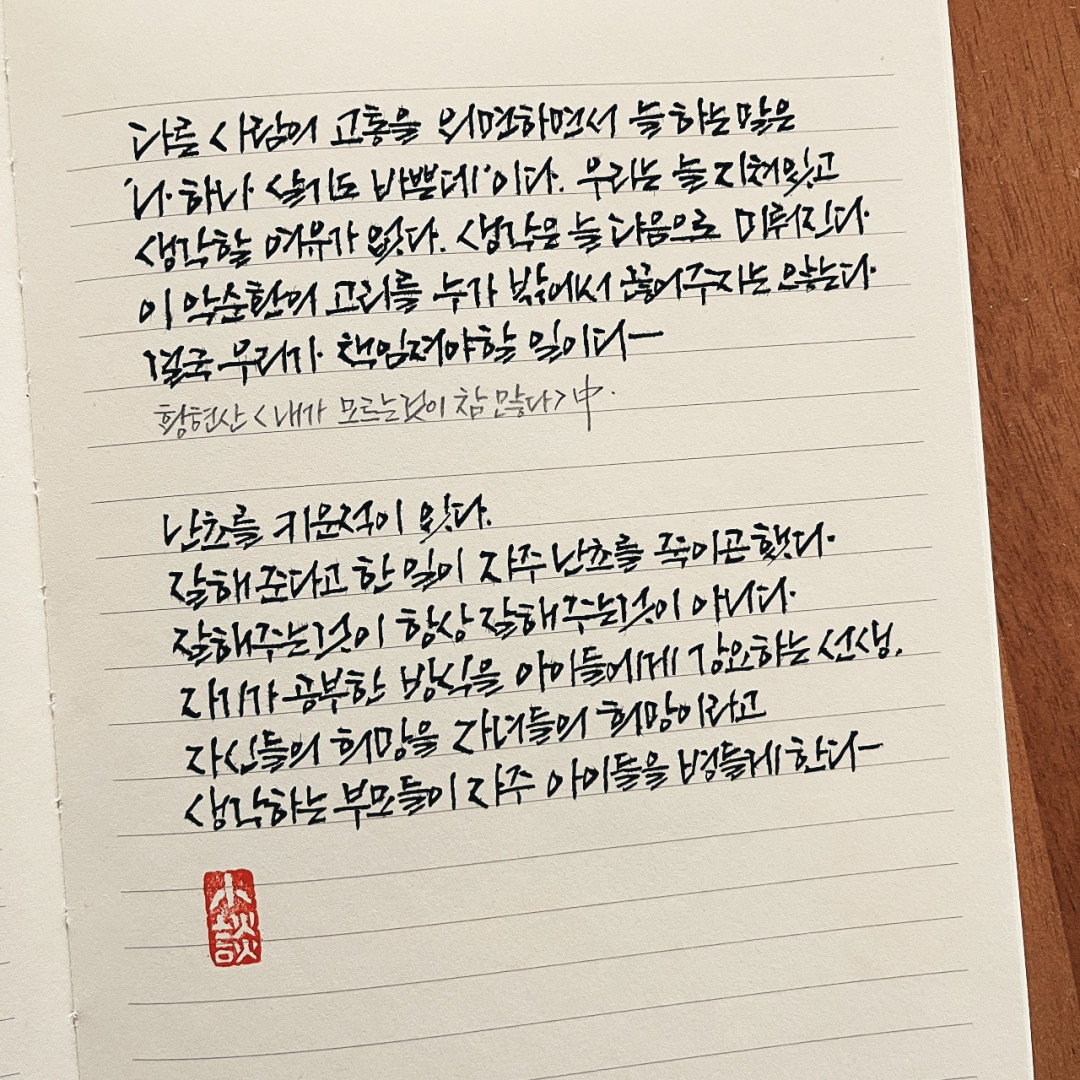 다른 사람의 고통을 외면하면서 늘 하는 말은
'나 하나 살기도 바쁜데'이다. 우리는 늘 지쳐있고
생각할 여유가 없다. 생각은 늘 다음으로 미뤄진다.
이 악순환의 고리를 누가 밖에서 끊어주지는 않는다.
결국 우리가 책임져야할 일이다ㅡ
황현산 <내가 모르는것이 참 많다> 中.
난초를 키운적이 있다.
잘해 준다고 한 일이 자주 난초를 죽이곤 했다.
잘해주는것이 항상 잘해주는것이 아니다.
자기가 공부한 방식을 아이들에게 강요하는 선생,
자신들의 희망을 자녀들의 희망이라고
생각하는 부모들이 자주 아이들을 병들게 한다ㅡ
小
談